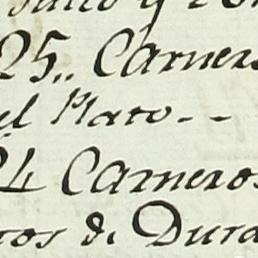 25.. Carner
el Plato - -
24 Carneros
tos de Dura